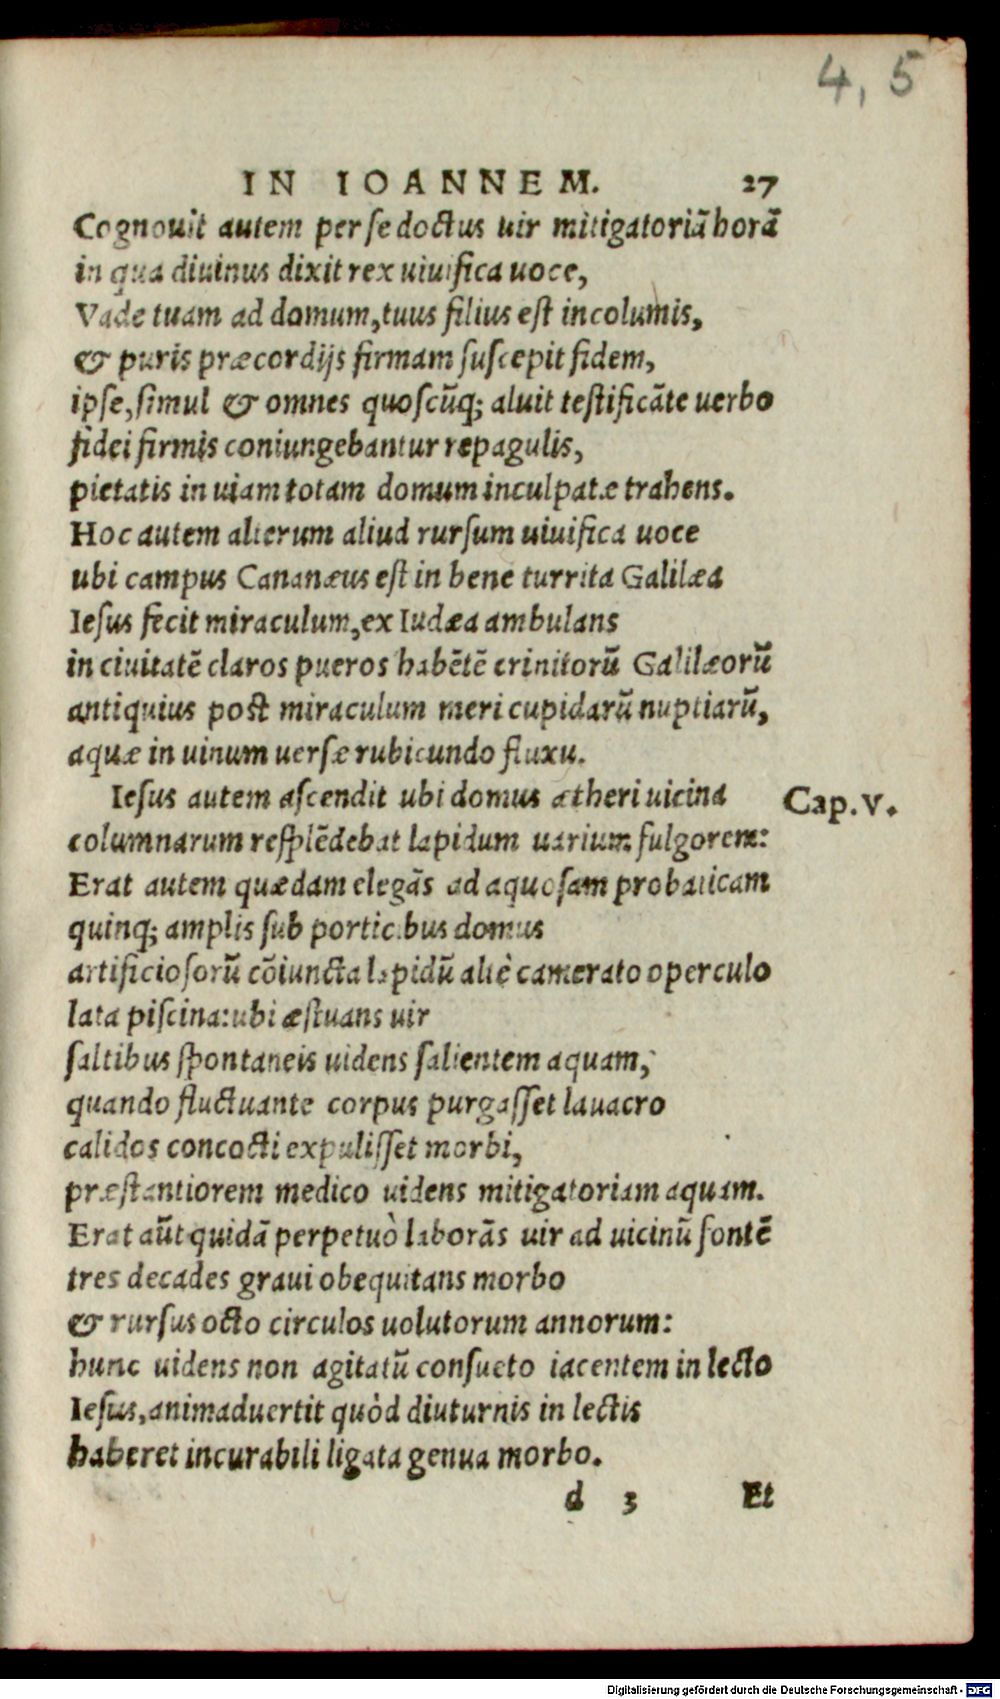 4, 5
IN IOANNEM. 27
Cognouit autem per se doctus uir mitigatoriā horā
in qua diuinus dixit rex uiuifica uoce,
Vade tuam ad domum, tuus filius est incolumis,
& puris præcordijs firmam suscepit fidem,
ipse, simul & omnes quoscūq; aluit testificāte uerbo
fidei firmis coniungebantur repagulis,
pietatis in uiam totam domum inculpatæ trahens.
Hoc autem alterum aliud rursum uiuifica uoce
ubi campus Cananæus est in bene turrita Galilæa
Iesus fecit miraculum, ex Iudæa ambulans
in ciuitatē claros pueros habētē crinitorū Galilæorū
antiquius post miraculum meri cupidarū nuptiarū,
aquæ in uinum uersæ rubicundo fluxu.
Iesus autem ascendit ubi domus ætheri uicina
Cap. V.
columnarum resplēdebat lapidum uarium fulgorem:
Erat autem quædam elegās ad aquosam probaticam
quinq; amplis sub porticibus domus
artificiosorū cōiuncta lapidū altè camerato operculo
lata piscina: ubi æstuans uir
saltibus spontaneis uidens salientem aquam,
quando fluctuante corpus purgasset lauacro
calidos concocti expulisset morbi,
præstantiorem medico uidens mitigatoriam aquam.
Erat aūt quidā perpetuò laborās uir ad uicinū fontē
tres decades graui obequitans morbo
& rursus octo circulos uolutorum annorum:
hunc uidens non agitatū consueto iacentem in lecto
Iesus, animaduertit quòd diuturnis in lectis
haberet incurabili ligata genua morbo.
d 3 Et
Digitalisierung gefördert durch die Deutsche Forschungsgemeinschaft - DFG